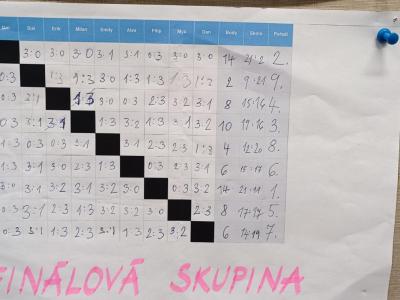 Erik Milan Emily Alva Filip Mya Dan Body Skóre Pořadí
3:0 3:0 3:0 3:1 3:1 0:3 3:0 3:0 14 2.
0:3 1:3 3:0 1:3 1:3 1:3 2 9:21 9.
0:3 3:1 3:0 0:3 2:3 3:2 3:1 8 15:16 4.
0:3 3:1 3:1 1:3 3:2 1:3 3:2 10 17:16 3.
1:3 0:3 0:3 3:1 3:1 2:3 2:3 1:3 4 12:20 8.
1:3 3:1 3:0 2:3 1:3 0:3 2:3 3:1 6 15:17 6.
3:0 3:1 3:2 3:1 3:2 3:0 0:3 3:2 14 1.
0:3 3:1 2:3 1:3 3:2 3:2 3:0 2:3 8 17:17 5.
0:3 3:1 1:3 2:3 3:1 1:3 2:3 3:2 6 14:19 7.
FINÁLOVÁ SKUPINA